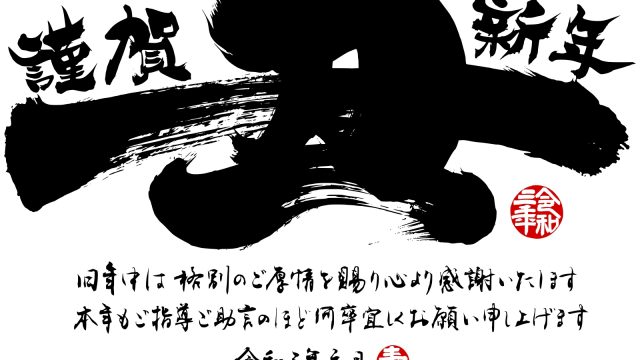 謹賀
新年
丑
令和三年
旧年中は格別のご厚情を賜り心より感謝いたします
本年もご指導ご助言のほど何卒宜しくお願い申し上げます
令和三年元旦